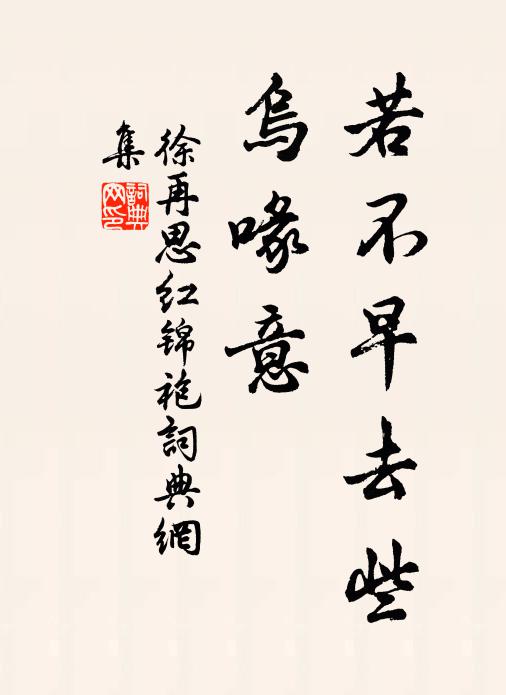 若不早去些
烏喙意
徐再思红錦袍詞典網
集
詞典
网印